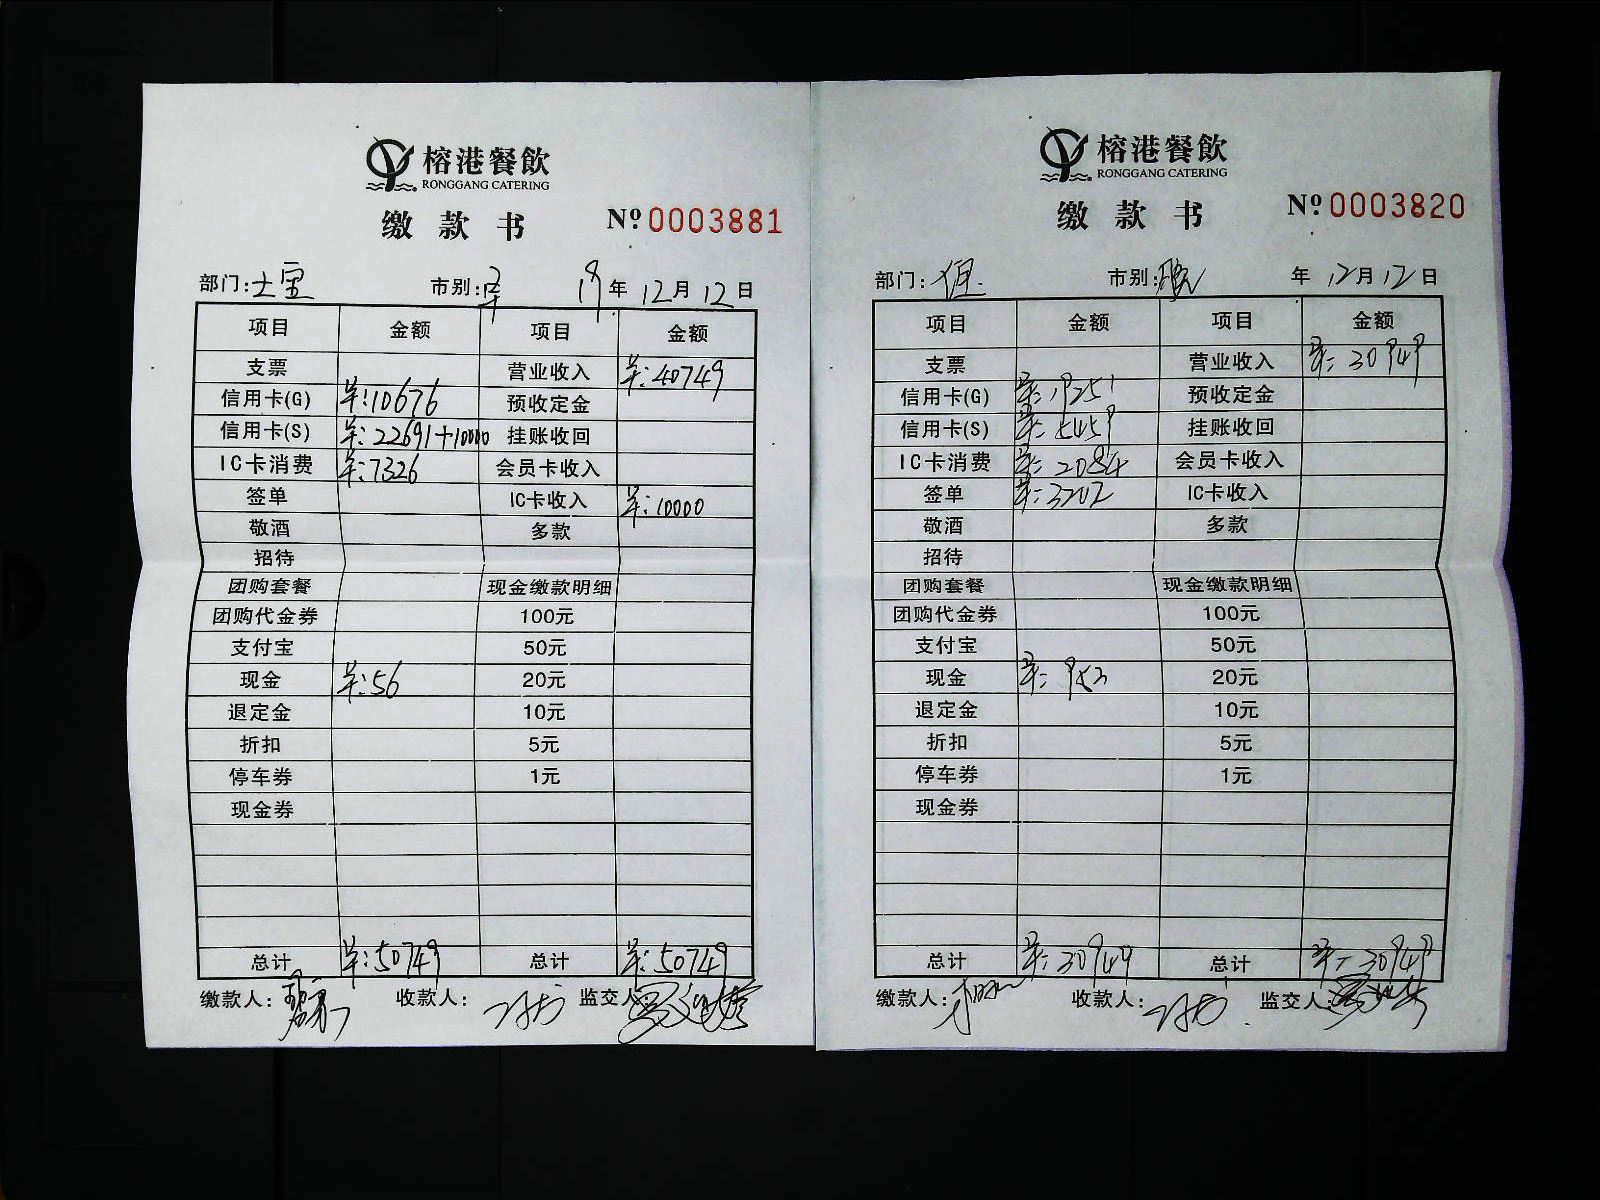 榕港餐飲
RONGGANG CATERING
缴款书 Nº 0003881
部门: 市别: 年 12月12日
项目 金额 项目 金额
支票 营业收入 羊:40749
信用卡(G) 羊:10676 预收定金
信用卡(S) 羊:22691+10000 挂账收回
IC卡消费 羊:7326 会员卡收入
签单 IC卡收入 羊:10000
敬酒 多款
招待
团购套餐 现金缴款明细
团购代金券 100元
支付宝 50元
现金 羊:56 20元
退定金 10元
折扣 5元
停车券 1元
现金券
总计 羊:50749 总计 羊:50749
缴款人: 收款人: 监交人:
榕港餐飲
RONGGANG CATERING
缴款书 Nº 0003820
部门: 市别: 年 12月12日
项目 金额 项目 金额
支票 营业收入 羊:30949
信用卡(G) 预收定金
信用卡(S) 挂账收回
IC卡消费 羊:2084 会员卡收入
签单 羊:3202 IC卡收入
敬酒 多款
招待
团购套餐 现金缴款明细
团购代金券 100元
支付宝 50元
现金 20元
退定金 10元
折扣 5元
停车券 1元
现金券
总计 羊:30949 总计 羊:30949
缴款人: 收款人: 监交人: